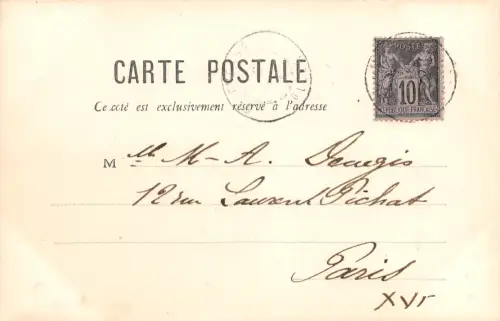 CARTE POSTALE
POSTE
10
REPUBLIQUE FRANÇAISE
Ce côté est exclusivement réservé à l'adresse
M lle M-A. Denegis
12 rue Laurent Pichat
Paris
XVI